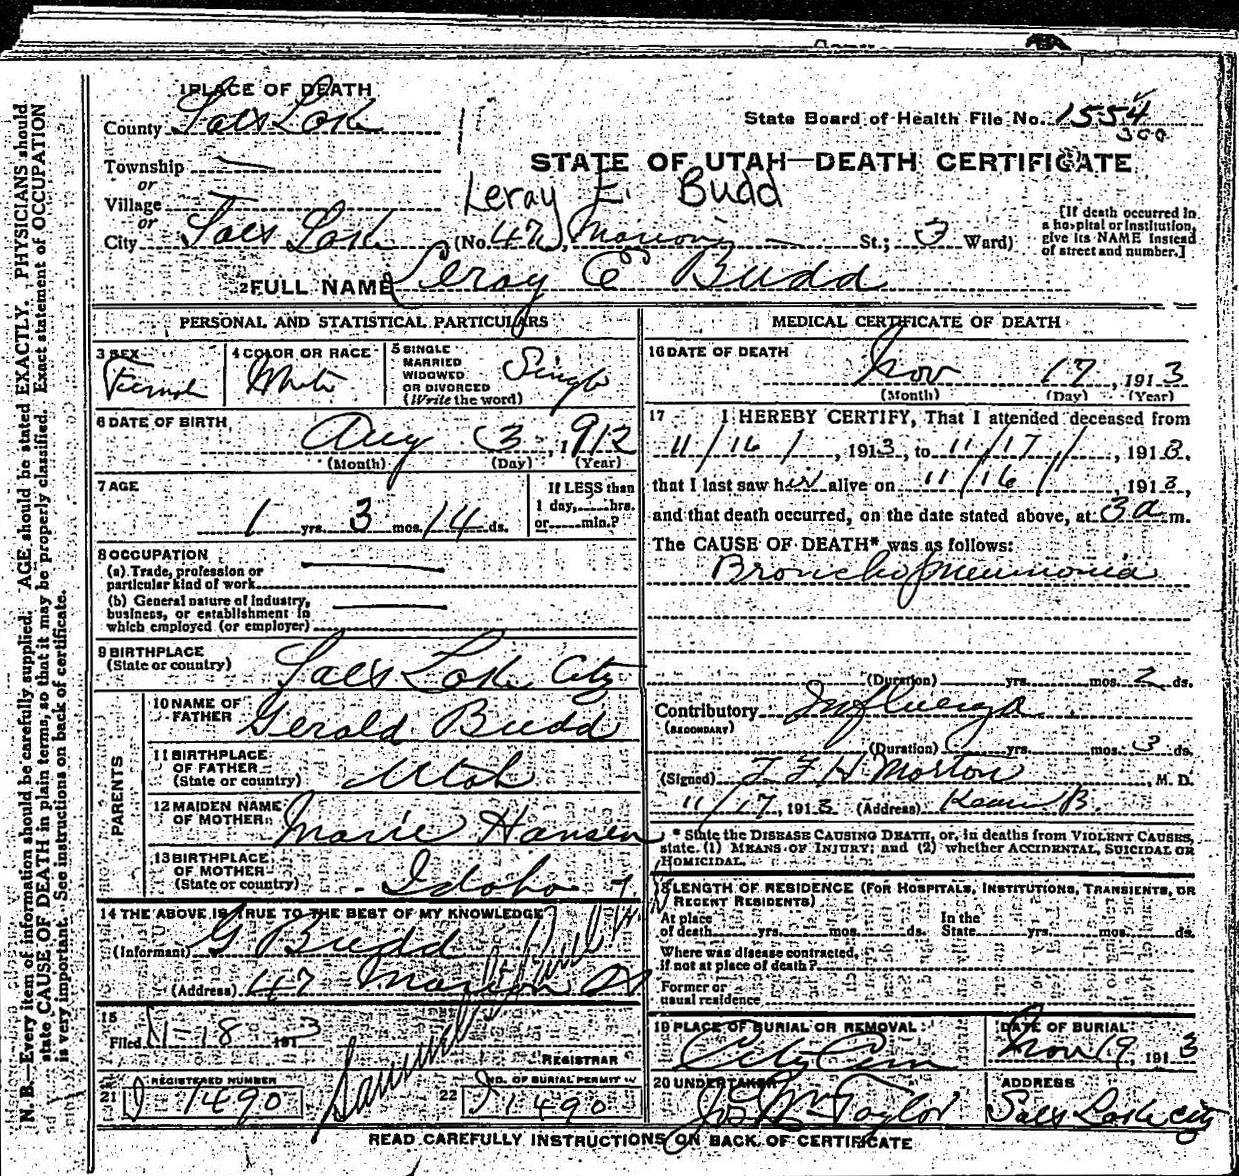 1 PLACE OF DEATH
County Salt Lake
State Board of Health File No. 1554
300
Township —
or
Village
or
STATE OF UTAH—DEATH CERTIFICATE
Leray E. Budd
City Salt Lake (No. 47, Marion — St.; 3 Ward)
[If death occurred in
a hospital or institution,
give its NAME instead
of street and number.]
2 FULL NAME Leray E Budd
PERSONAL AND STATISTICAL PARTICULARS
3 SEX
Femal
4 COLOR OR RACE
White
5 SINGLE
MARRIED
WIDOWED
OR DIVORCED
(Write the word)
Single
6 DATE OF BIRTH
Aug 3, 1912
(Month) (Day) (Year)
7 AGE
1 yrs. 3 mos. 14 ds.
If LESS than
1 day, hrs.
or min.?
8 OCCUPATION
(a) Trade, profession or
particular kind of work
(b) General nature of industry,
business, or establishment in
which employed (or employer)
9 BIRTHPLACE
(State or country)
Salt Lake City
PARENTS
10 NAME OF
FATHER
Gerald Budd
11 BIRTHPLACE
OF FATHER
(State or country)
Utah
12 MAIDEN NAME
OF MOTHER
Marie Hansen
13 BIRTHPLACE
OF MOTHER
(State or country)
Idaho
14 THE ABOVE IS TRUE TO THE BEST OF MY KNOWLEDGE
(Informant) G Budd
(Address) 47 Marion St
15
Filed 11-18 1913
REGISTRAR
21 REGISTERED NUMBER
1490
22 NO. OF BURIAL PERMIT
1490
MEDICAL CERTIFICATE OF DEATH
16 DATE OF DEATH
Nov 17, 1913
(Month) (Day) (Year)
17 I HEREBY CERTIFY, That I attended deceased from
11/16/, 1913, to 11/17/, 1913,
that I last saw her alive on 11/16/, 1913,
and that death occurred, on the date stated above, at 3 a m.
The CAUSE OF DEATH* was as follows:
Broncho pneumonia
(Duration) yrs. mos. 2 ds.
Contributory Influenza
(SECONDARY)
(Duration) yrs. mos. 3 ds.
(Signed) T F H Morton, M. D.
11/17, 1913 (Address) B.
* State the DISEASE CAUSING DEATH, or, in deaths from VIOLENT CAUSES,
state (1) MEANS OF INJURY; and (2) whether ACCIDENTAL, SUICIDAL OR
HOMICIDAL.
18 LENGTH OF RESIDENCE (FOR HOSPITALS, INSTITUTIONS, TRANSIENTS, OR
RECENT RESIDENTS)
At place In the
of death yrs. mos. ds. State yrs. mos. ds.
Where was disease contracted,
if not at place of death?
Former or
usual residence
19 PLACE OF BURIAL OR REMOVAL
City Cem
DATE OF BURIAL
Nov 19, 1913
20 UNDERTAKER
Jos Wm Taylor
ADDRESS
Salt Lake City
READ CAREFULLY INSTRUCTIONS ON BACK OF CERTIFICATE
N. B.—Every item of information should be carefully supplied. AGE should be stated EXACTLY. PHYSICIANS should
state CAUSE OF DEATH in plain terms, so that it may be properly classified. Exact statement of OCCUPATION
is very important. See instructions on back of certificate.